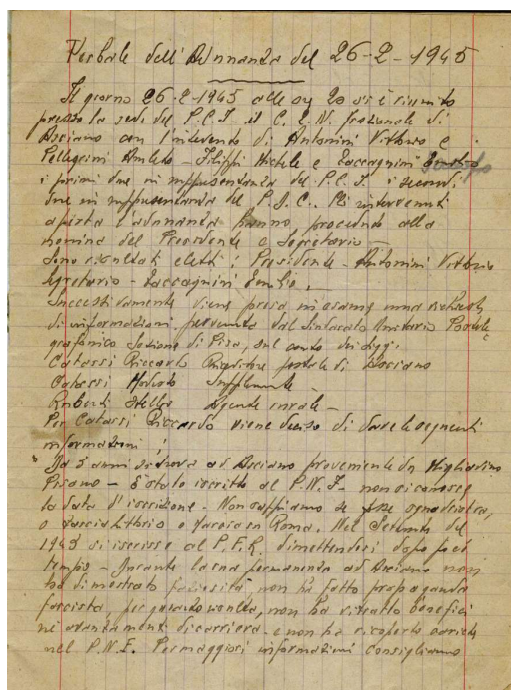 Verbale dell'Adunnanza del 26-2-1945
Il giorno 26-2-1945 alle ore 20 si è riunito
presso la sede del P.C.I. il C.L.N. frazionale di
Asciano con l'intervento di Antonini Vittorio e
Pellegrini Amleto - Filippi Michele e Zaccagnini
i primi due in rappresentanza del P.C.I. i secondi
due in rappresentanza del P.D.C.. Gli intervenuti
aperta l'adunnanza hanno proceduto alla
nomina del Presidente e Segretario
Sono risultati eletti: Presidente - Antonini Vittorio
Segretario - Zaccagnini Emilio.
Successivamente viene presa in esame una richiesta
di informazioni pervenuta dal Sindacato Unitario Postale
grafonico Sezione di Pisa, sul conto dei Sigg:
Catassi Riccardo Ricevitore postale di Asciano
Catassi Supplente -
Ruberti Stella Agente rurale -
Per Catassi Riccardo viene deciso di dare le seguenti
informazioni:
"Da 5 anni si trova ad Asciano proveniente da Migliarino
Pisano - È stato iscritto al P.N.F. - non si conosce
la data d'iscrizione - Non sappiamo se fosse squadrista,
o sciarpa Littorio o Marcia su Roma. Nel Settembre del
1943 si iscrisse al P.F.R. dimettendosi dopo poco
tempo - Durante la sua permanenza ad Asciano non
ha dimostrato faziosità, non ha fatto propaganda
fascista, per quanto risulta, non ha ritratto benefici
nè avanzamenti di carriera - e non ha ricoperto cariche
nel P.N.F. Per maggiori informazioni consigliamo